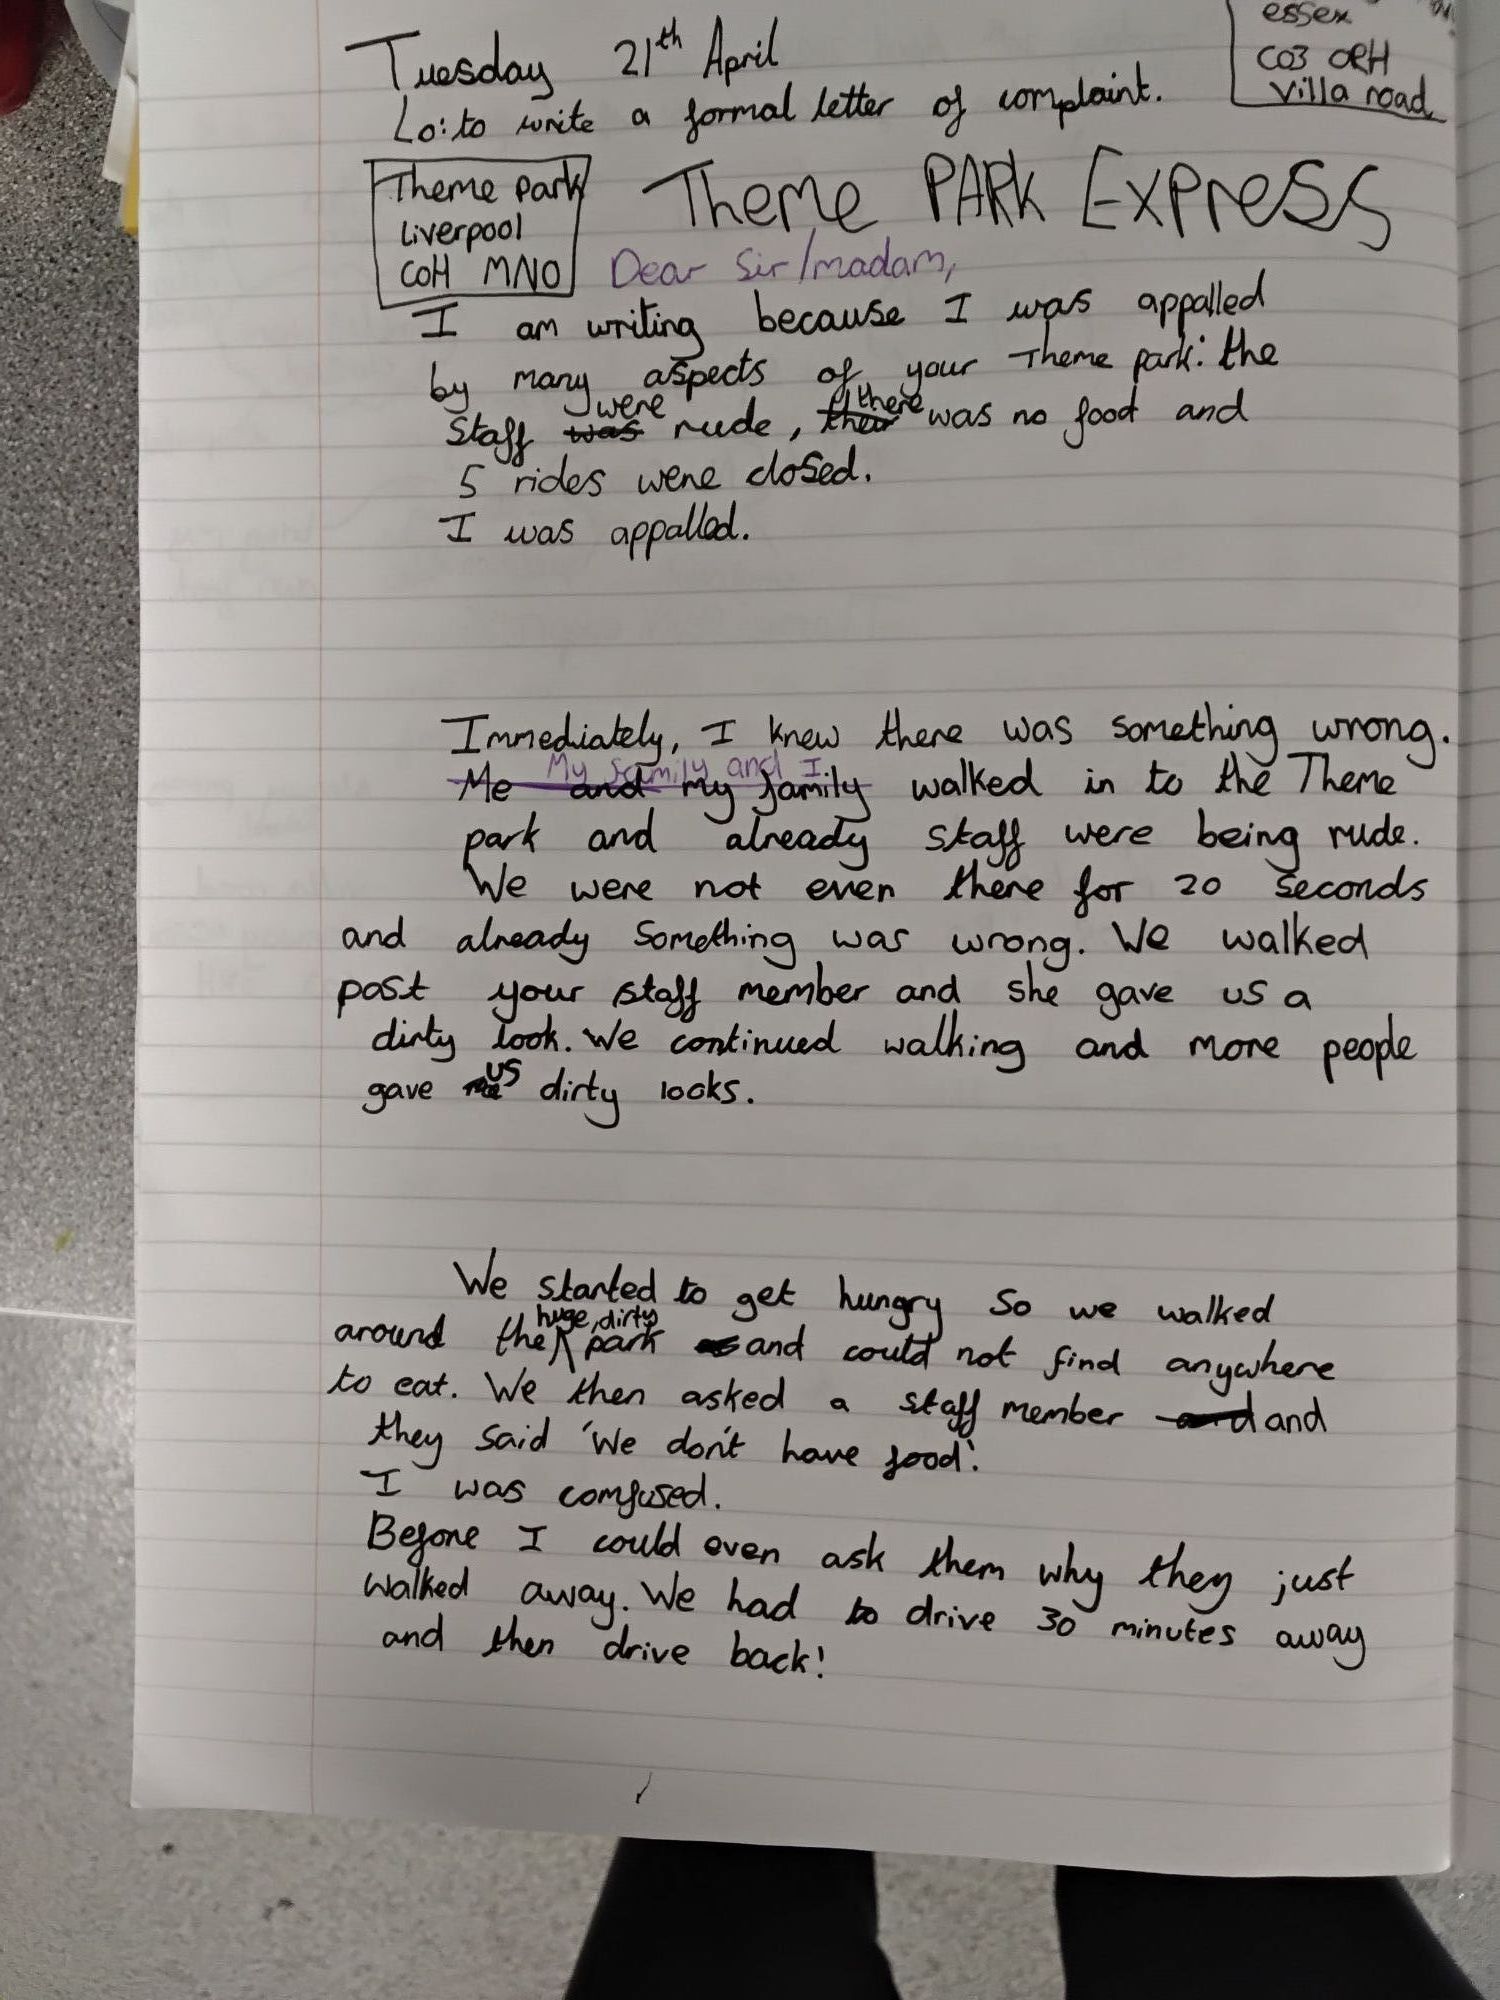 essex
CO3 ORH
Villa road
Tuesday 21th April
Lo: to write a formal letter of complaint.
Theme park
Liverpool
COH MNO
Theme PARK Express
Dear Sir/madam,
I am writing because I was appalled
by many aspects of your Theme park: the
staff were rude, there was no food and
5 rides were closed.
I was appalled.
Immediately, I knew there was something wrong.
My family and I
Me and my family walked in to the Theme
park and already staff were being rude.
We were not even there for 20 seconds
and already something was wrong. We walked
past your staff member and she gave us a
dirty look. We continued walking and more people
gave us dirty looks.
We started to get hungry so we walked
around the huge, dirty park and could not find anywhere
to eat. We then asked a staff member and
they said 'We don't have food'.
I was comfused.
Before I could even ask them why they just
walked away. We had to drive 30 minutes away
and then drive back!